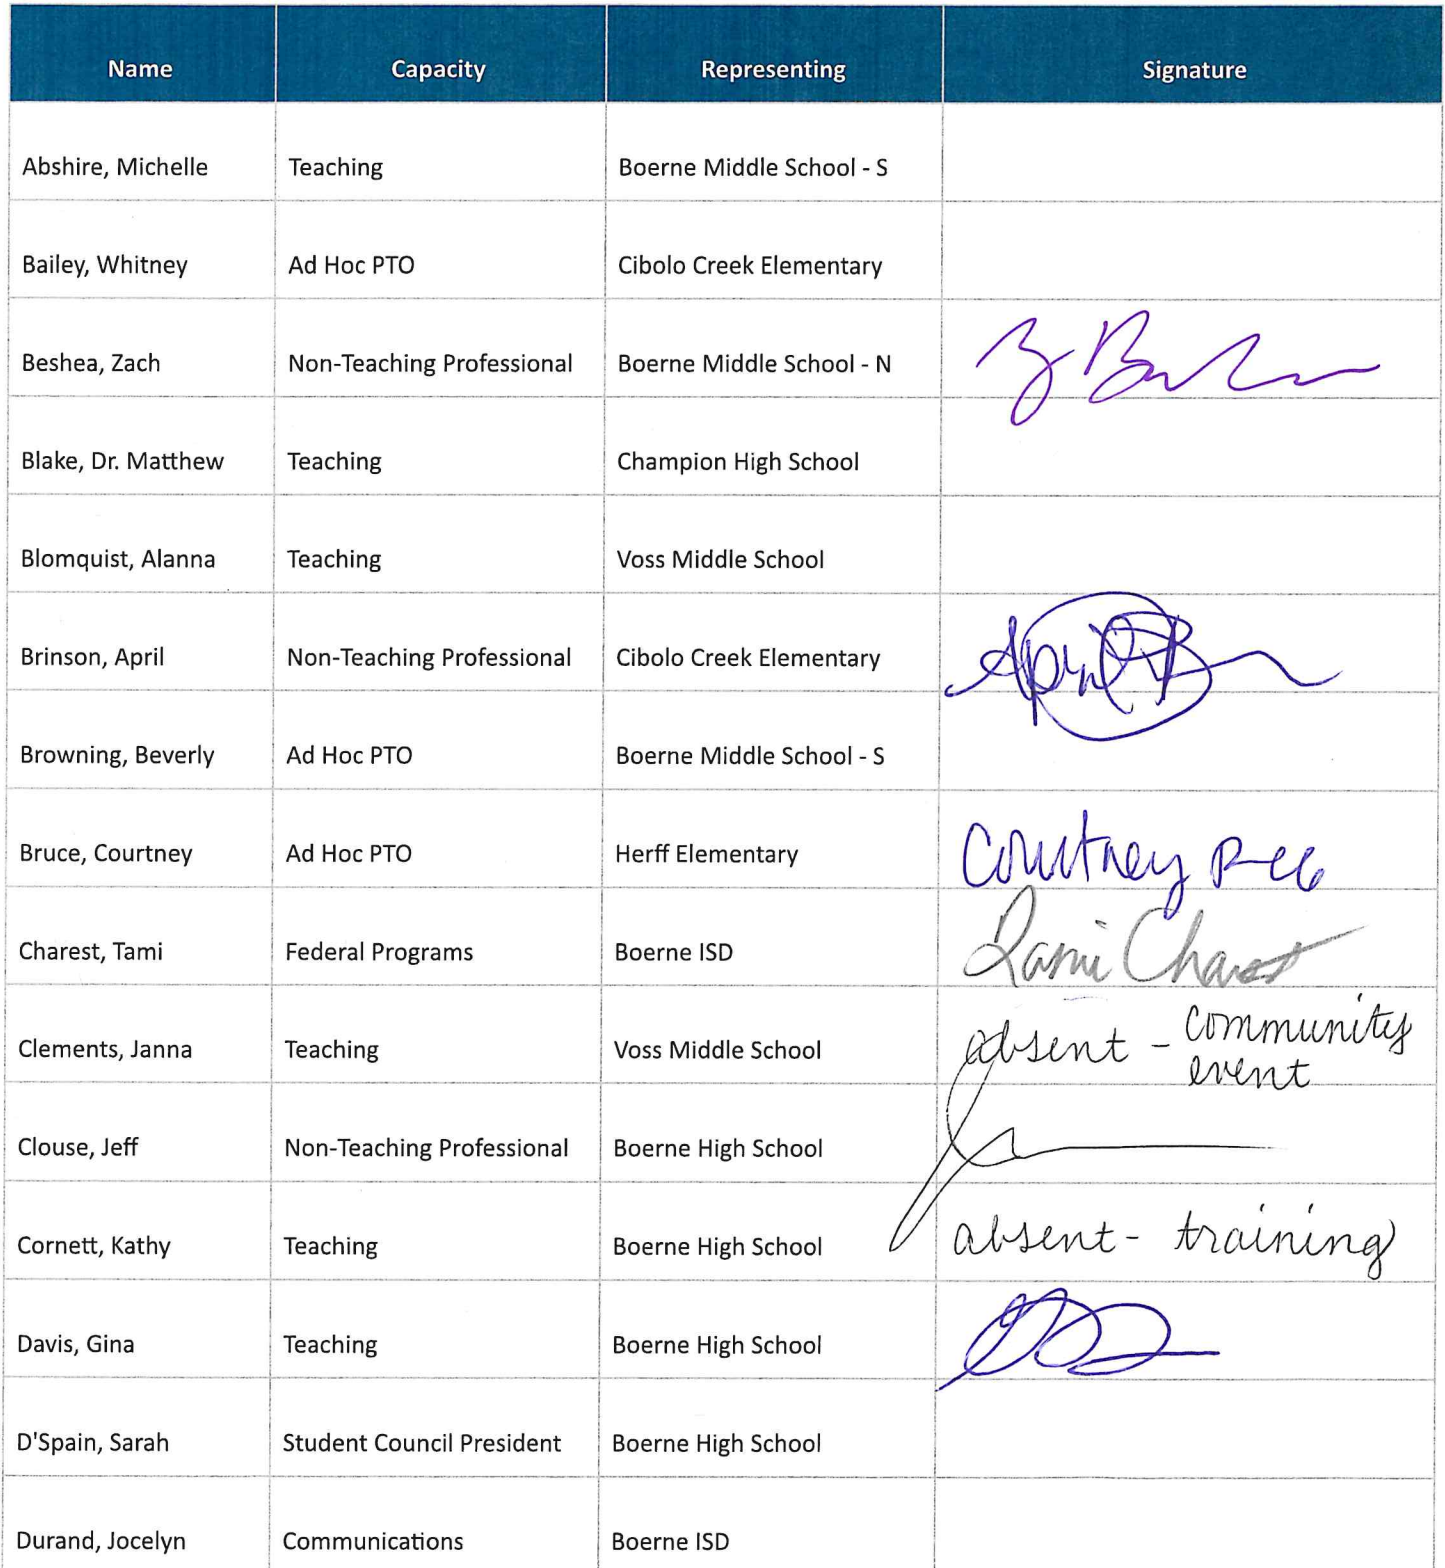 Name Capacity Representing Signature
Abshire, Michelle Teaching Boerne Middle School - S
Bailey, Whitney Ad Hoc PTO Cibolo Creek Elementary
Beshea, Zach Non-Teaching Professional Boerne Middle School - N
Blake, Dr. Matthew Teaching Champion High School
Blomquist, Alanna Teaching Voss Middle School
Brinson, April Non-Teaching Professional Cibolo Creek Elementary April B
Browning, Beverly Ad Hoc PTO Boerne Middle School - S
Bruce, Courtney Ad Hoc PTO Herff Elementary Courtney
Charest, Tami Federal Programs Boerne ISD Tami Charest
Clements, Janna Teaching Voss Middle School absent - community
event
Clouse, Jeff Non-Teaching Professional Boerne High School
Cornett, Kathy Teaching Boerne High School absent - training
Davis, Gina Teaching Boerne High School
D'Spain, Sarah Student Council President Boerne High School
Durand, Jocelyn Communications Boerne ISD